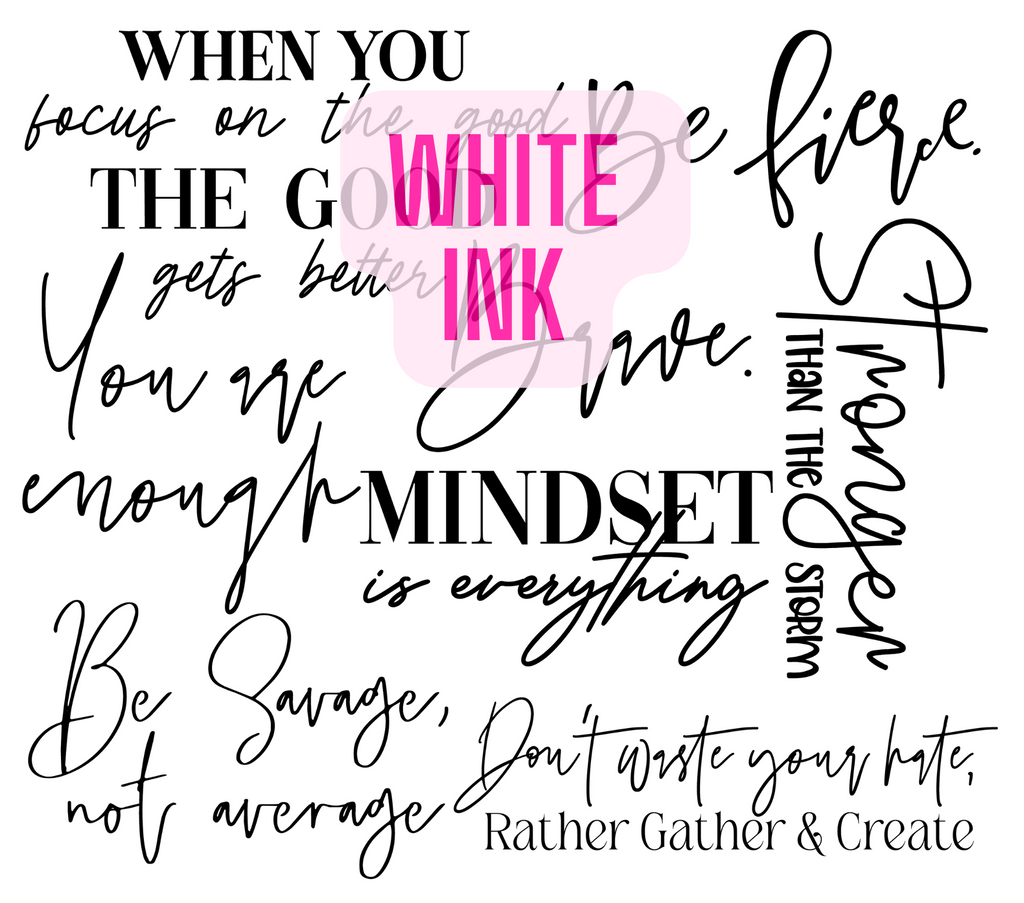 WHEN YOU
focus on the good
THE GOOD
gets better
WHITE
INK
Be fierce.
Brave.
Stronger
THAN THE STORM
You are
enough
MINDSET
is everything
Be Savage,
not average
Don't waste your hate,
Rather Gather & Create